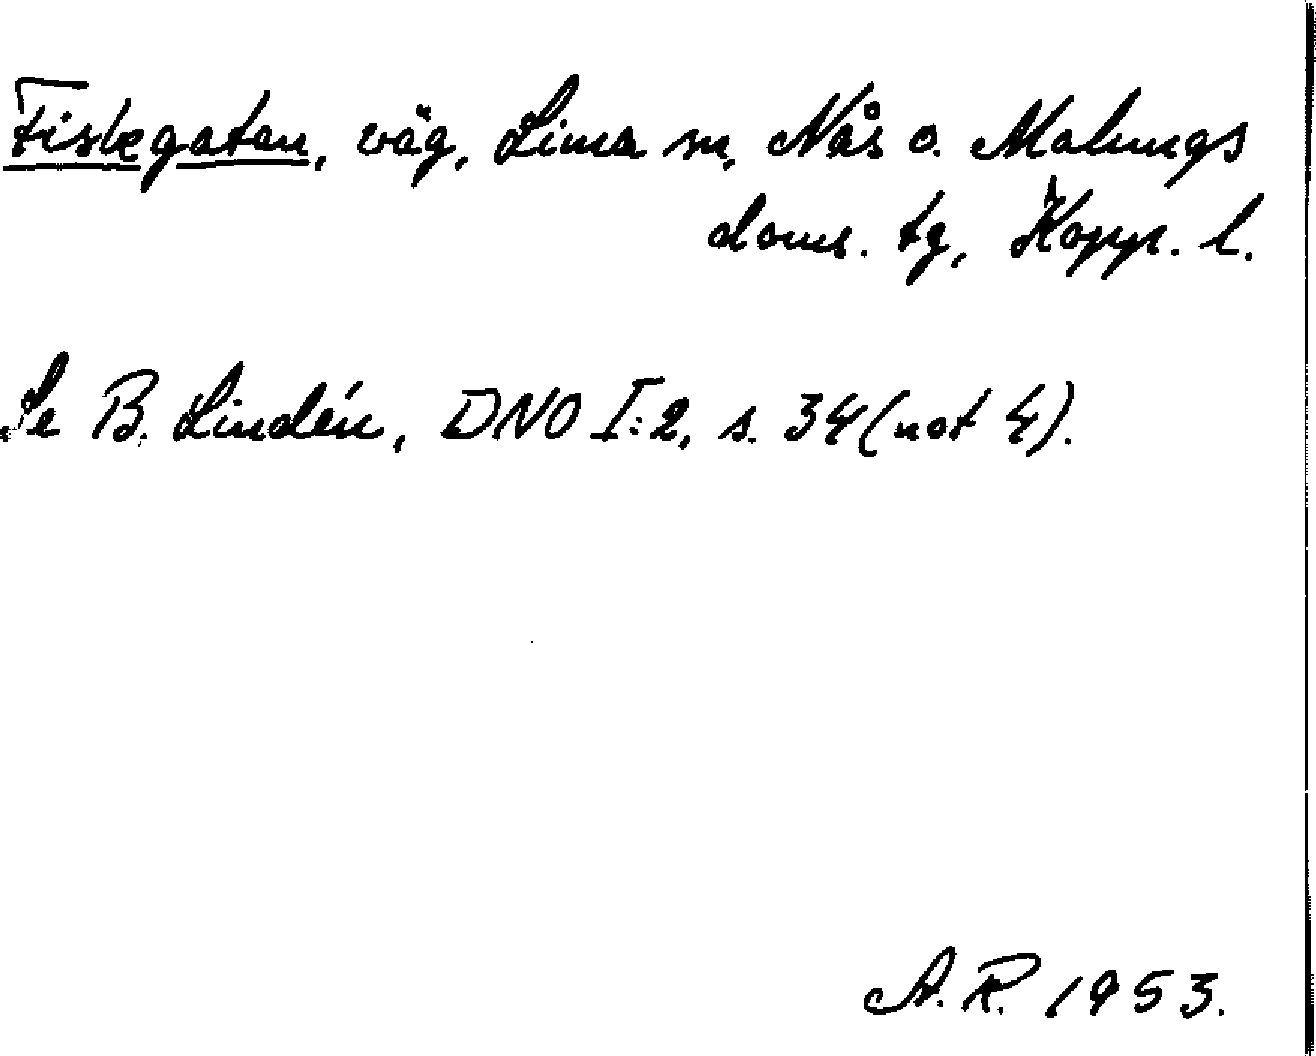 Fiskegatan, väg, Lima sn, Nås o. Malungs
doms. tg, Kopp. l.
Se B. Lindén, DNO I:2, s. 34 (not 4).
A. R. 1953.